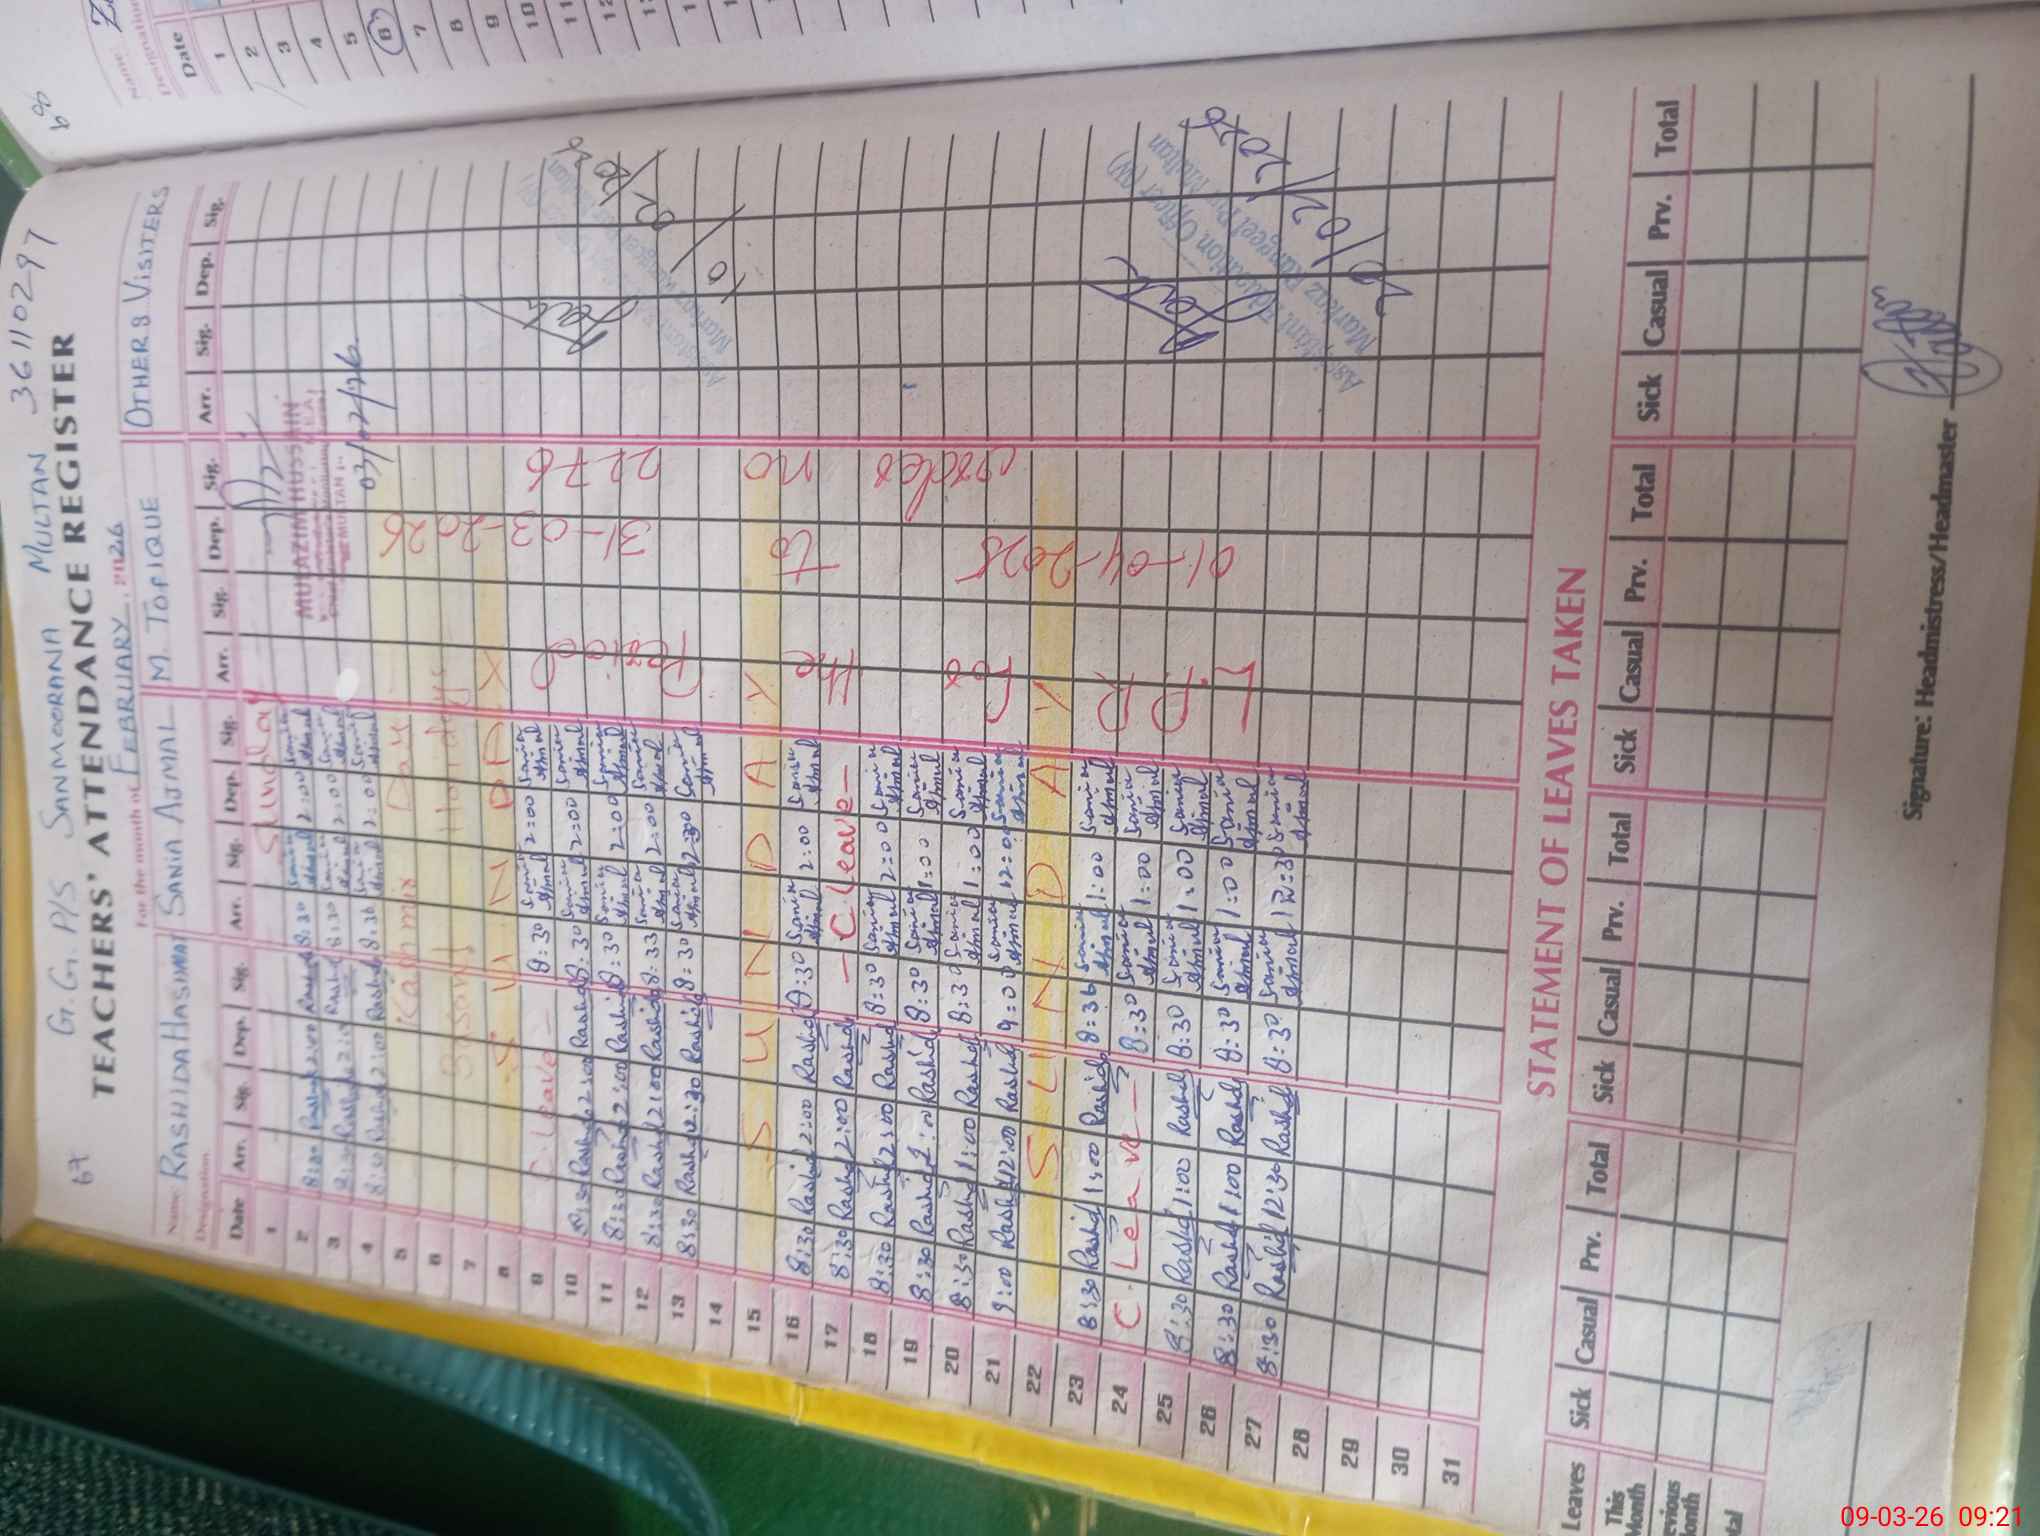 67
G.G. P/S SANMORANA MULTAN 36110297
TEACHERS' ATTENDANCE REGISTER
For the month of FEBRUARY, 2026
Name: RASHIDA HASHMAT SANIA AJMAL M. TOFIQUE OTHER & VISITERS
Designation
Date Arr. Sig. Dep. Sig. Arr. Sig. Dep. Sig. Arr. Sig. Dep. Sig. Arr. Sig. Dep. Sig.
1 Sunday
2 8:30 Rashid 2:00 Rashid 8:30 Sania Ajmal 2:00 Sania Ajmal
3 8:30 Rashid 2:00 Rashid 8:30 Sania Ajmal 2:00 Sania Ajmal
4 8:30 Rashid 2:00 Rashid 8:36 Sania Ajmal 2:00 Sania Ajmal
MUAZIM HUSSAIN
03/02/26
5 Kashmir Day
6 Basant Holidays
7
8 SUNDAY
9 C. leave 8:30 Sania Ajmal 2:00 Sania Ajmal
10 8:30 Rashid 2:00 Rashid 8:30 Sania Ajmal 2:00 Sania Ajmal
11 8:30 Rashid 2:00 Rashid 8:30 Sania Ajmal 2:00 Sania Ajmal
12 8:30 Rashid 2:00 Rashid 8:33 Sania Ajmal 2:00 Sania Ajmal
13 8:30 Rashid 12:30 Rashid 8:30 Sania Ajmal 12:30 Sania Ajmal
14
15 SUNDAY
16 8:30 Rashid 2:00 Rashid 8:30 Sania Ajmal 2:00 Sania Ajmal
17 8:30 Rashid 2:00 Rashid - C. leave -
18 8:30 Rashid 2:00 Rashid 8:30 Sania Ajmal 2:00 Sania Ajmal
19 8:30 Rashid 1:00 Rashid 8:30 Sania Ajmal 1:00 Sania Ajmal
20 8:30 Rashid 1:00 Rashid 8:30 Sania Ajmal 1:00 Sania Ajmal
21 9:00 Rashid 12:00 Rashid 9:00 Sania Ajmal 12:00 Sania Ajmal
22 SUNDAY
23 8:30 Rashid 1:00 Rashid 8:36 Sania Ajmal 1:00 Sania Ajmal
24 C. Leave - 8:30 Sania Ajmal 1:00 Sania Ajmal
25 8:30 Rashid 1:00 Rashid 8:30 Sania Ajmal 1:00 Sania Ajmal
26 8:30 Rashid 1:00 Rashid 8:30 Sania Ajmal 1:00 Sania Ajmal
27 8:30 Rashid 12:30 Rashid 8:30 Sania Ajmal 12:30 Sania Ajmal
28
29
30
31
L.P.R For the Period
01-04-2025 to 31-03-2026
order no 2276
10/02/2026
Assistant Education Officer (W)
Markaz Rangeel Pur Multan
STATEMENT OF LEAVES TAKEN
Leaves Sick Casual Prv. Total Sick Casual Prv. Total Sick Casual Prv. Total Sick Casual Prv. Total
This Month
Signature: Headmistress/Headmaster
Name:
Designation
Date
1
2
3
4
5
6
7
8
9
10
11
12
09-03-26 09:21